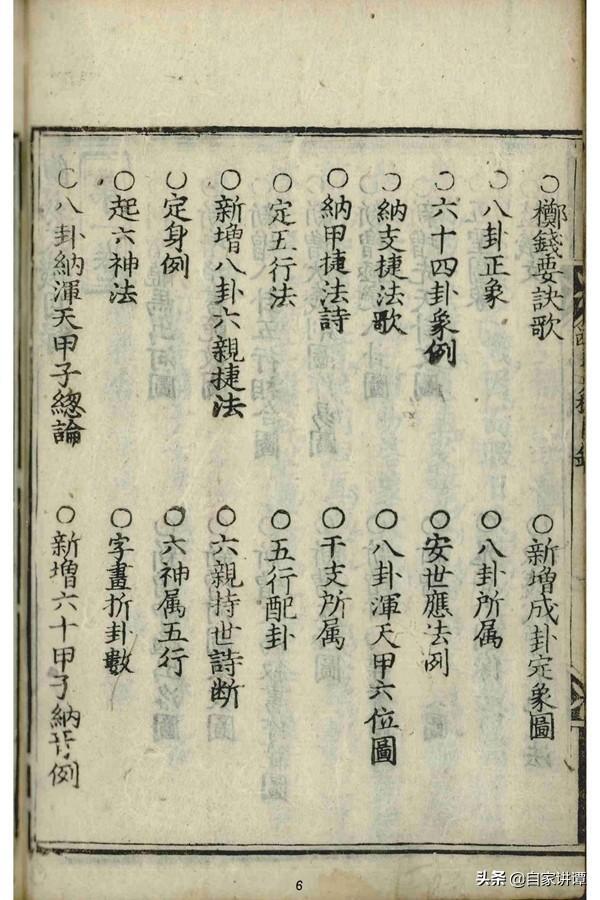 ○擲錢要訣歌 ○新增成卦定象圖
○八卦正象 ○八卦所属
○六十四卦象例 ○安世應法例
○納支捷法歌 ○八卦渾天甲六位圖
○納甲捷法詩 ○干支所属
○定五行法 ○五行配卦
○新增八卦六親捷法 ○六親持世詩断
○定身例 ○六神属五行
○起六神法 ○字畫折卦數
○八卦納渾天甲子總論 ○新增六十甲子納音例
6
头条 @自家讲谭